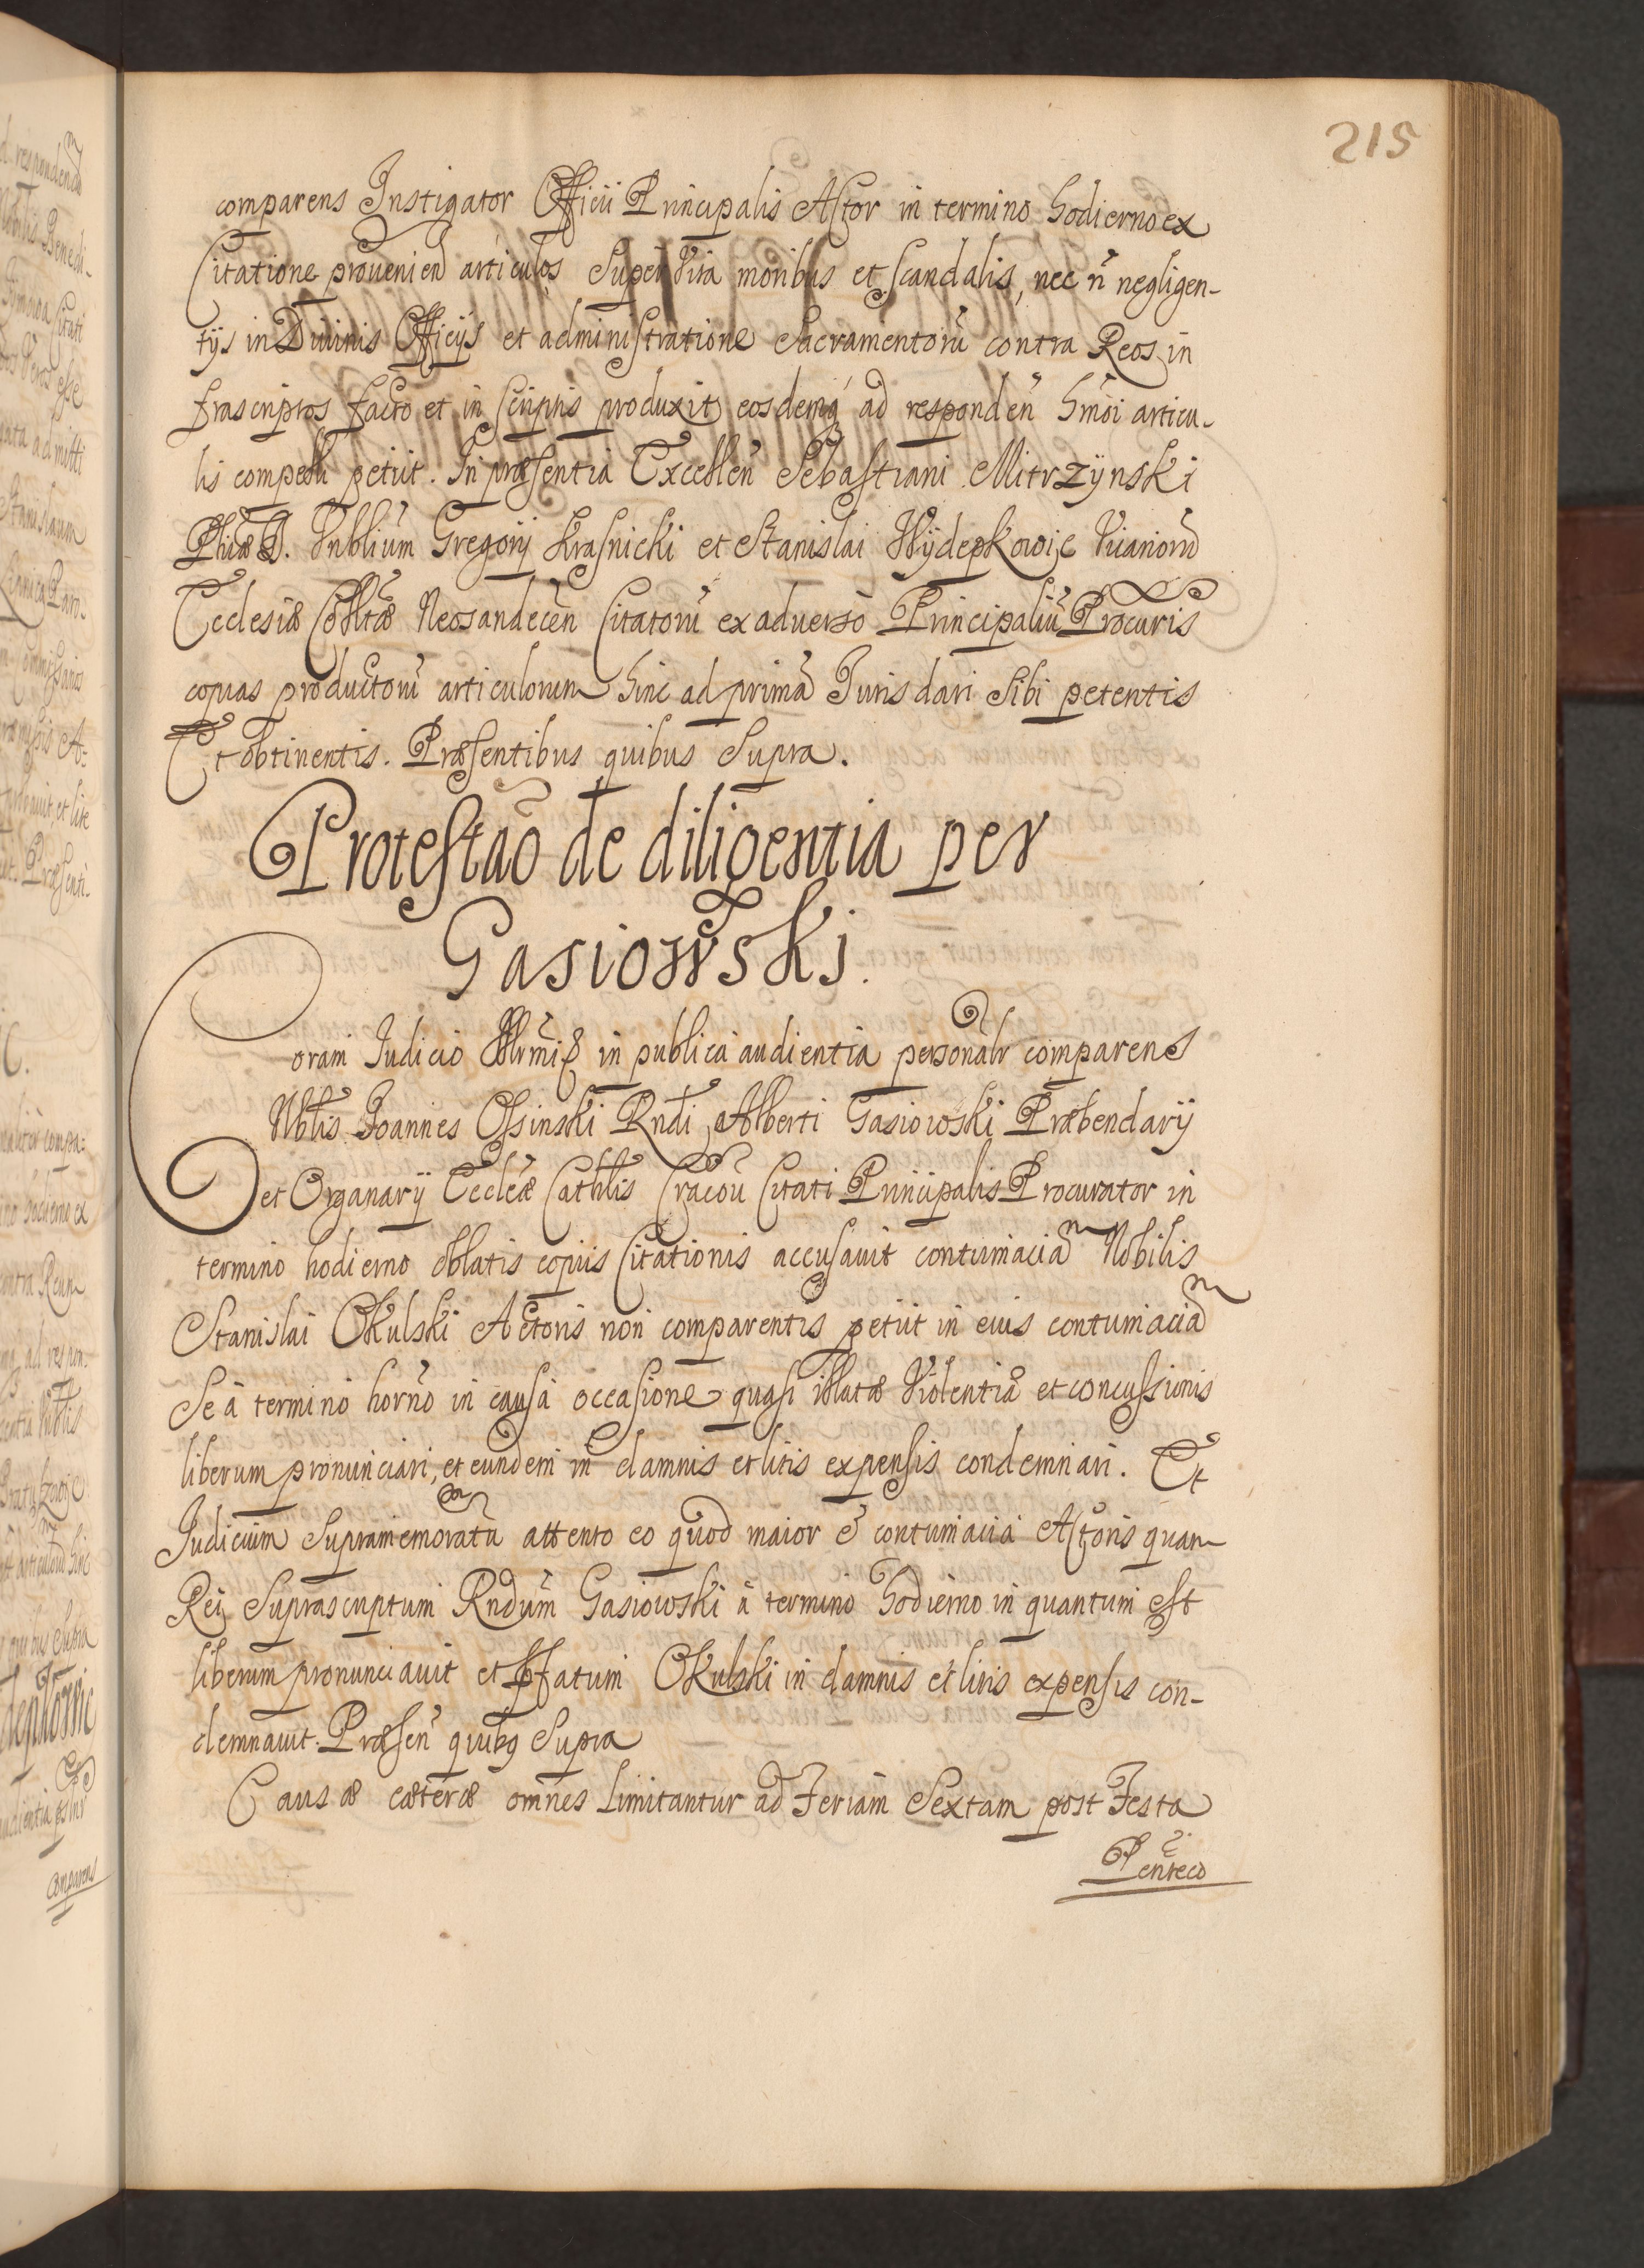 215
comparens Instigator Officii Principalis Actor in termino hodierno ex
Citatione provenien articulos super Vita moribus et scandalis, nec n̄ negligen-
tijs in Divinis Officijs et administratione Sacramentorū contra Reos in
frascriptos facto et in scriptis produxit eosdemq́ ad responden̄ hmōi articu-
lis compelli petiit. In præsentia Excellen̄ Sebastiani Mitrzÿnski
Phiæ D. Gregorij Krasnicki et Stanislai Wÿdepkowic Vicariorū
Ecclesiæ Colltæ Neosandecen̄ Citatorū ex adverso Principaliū Procuris
copias productorū articulorum hinc ad primā Juris dari sibi petentis
Et obtinentis. Præsentibus quibus supra.
Protestaō de diligentia per
Gasiowski.
Coram Judicio in publica audientia personalr comparens
Nblis Joannes Ossinski Rndi Alberti Gasiowski Præbendarij
et Organarij Eccleæ Cathlis Cracoū Citati Principalis Procurator in
termino hodierno oblatis copiis Citationis accusavit contumaciam Nobilis
Stanislai Okulski Actoris non comparentis petiit in eius contumaciam
Se à termino horno in causa occasione quasi illatæ Violentiæ et concussionis
liberum pronunciari, et eundem in damnis et litis expensis condemnari. Et
Judicium supramemoratū attento eo quod maior ē contumacia Actoris quam
Rei suprascriptum Rndum Gasiowski à termino hodierno in quantum est
liberum pronunciavit et pfatum Okulski in damnis et litis expensis con-
demnavit. Præsen̄ quibq supra
Causæ cæteræ omnes limitantur ad Feriam Sextam post Festa
Penteco